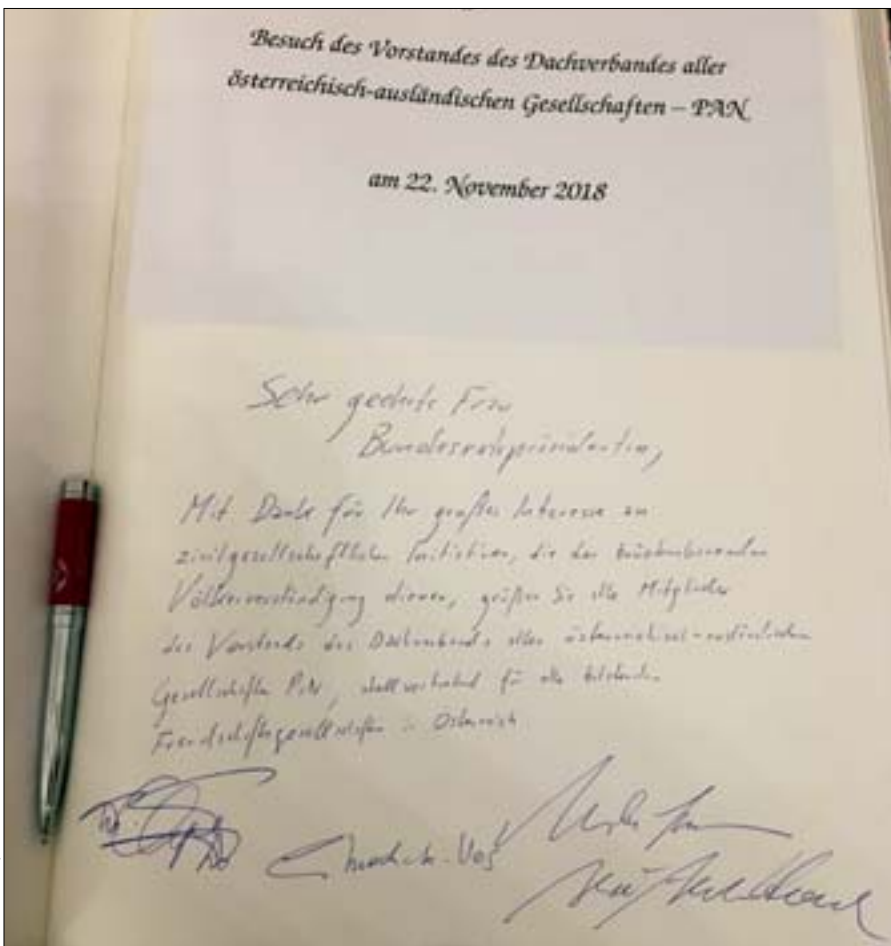 Besuch des Vorstandes des Dachverbandes aller
österreichisch-ausländischen Gesellschaften – PAN
am 22. November 2018
Sehr geehrte Frau
Bundesratspräsidentin,
Mit Dank für Ihr großes Interesse an
zivilgesellschaftlichen Initiativen, die der
Völkerverständigung dienen, grüßen Sie alle Mitglieder
des Vorstands des Dachverbands aller österreichisch-ausländischen
Gesellschaften PaN, stellvertretend für alle
Freundschaftsgesellschaften in Österreich